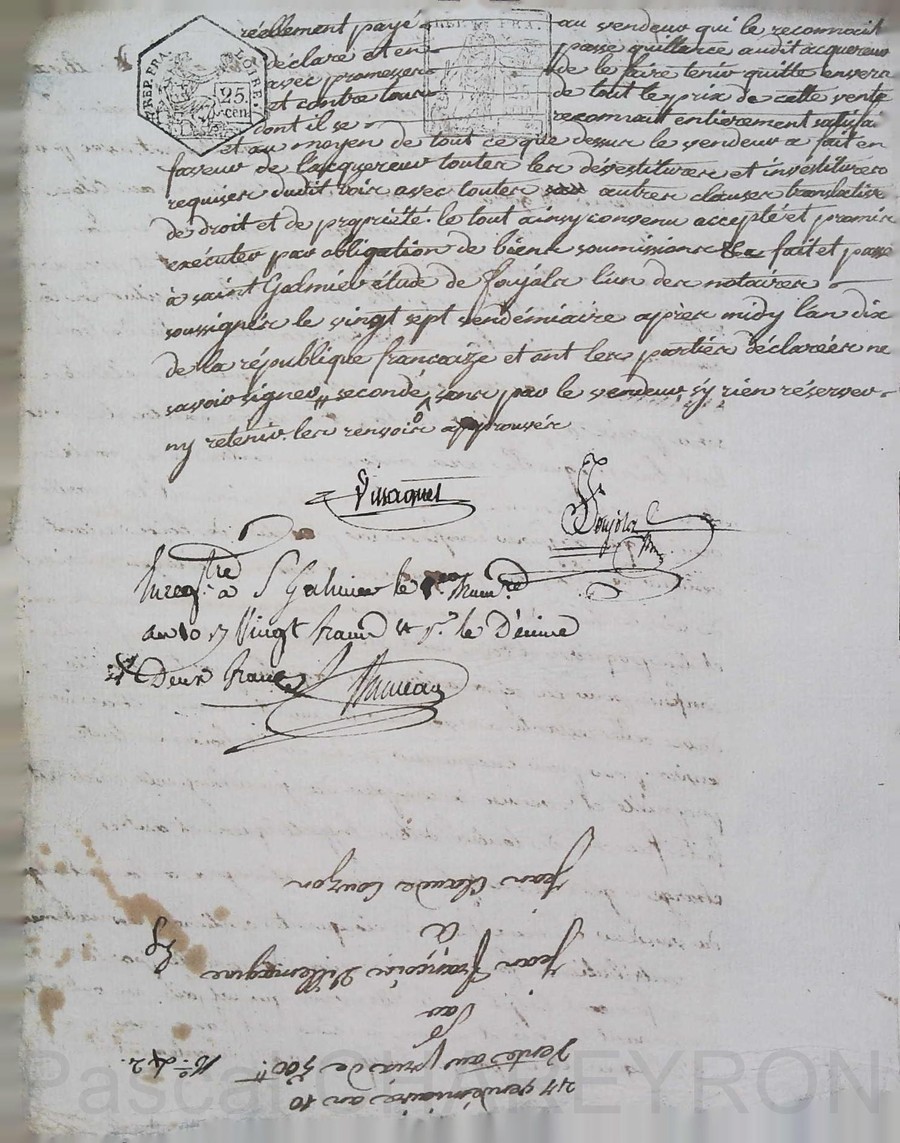 réellement payé au vendeur qui le reconnait
déclare et en passe quittance audit acquereur
avec promesse de le faire tenir quitte envers
et contre tous de tout le prix de cette vente
dont il se reconnait entierement satisfai
et au moyen de tout ce que dessus le vendeur a fait en
faveur de l'acquereur toutes les dévestitures et investitures
requises dudit bois avec toutes autres clauses translative
de droit et de propriete. le tout ainsy convenu accepté et promis
exécuter par obligation de biens soumissions &c fait et passé
à saint Galmier étude de Joujols l'un des notaires
soussignés le vingt sept vendémiaire après midy l'an dix
de la république francaize et ont les parties déclarées ne
savoir signer, secondé, sans par le vendeur s'y rien réserver
ny retenir. les renvois approuvés
REP. FRA.
LOIRE
25.
cen
Joujols
Enregtré à St Galmier le
an 10 Vingt francs le Décime
Deux francs
27 vendémiaire an 10
Vente au prix de 500tt
Par
Jean François Villemagne
à
Jean Claude Couzon
Pascal CHALEYRON